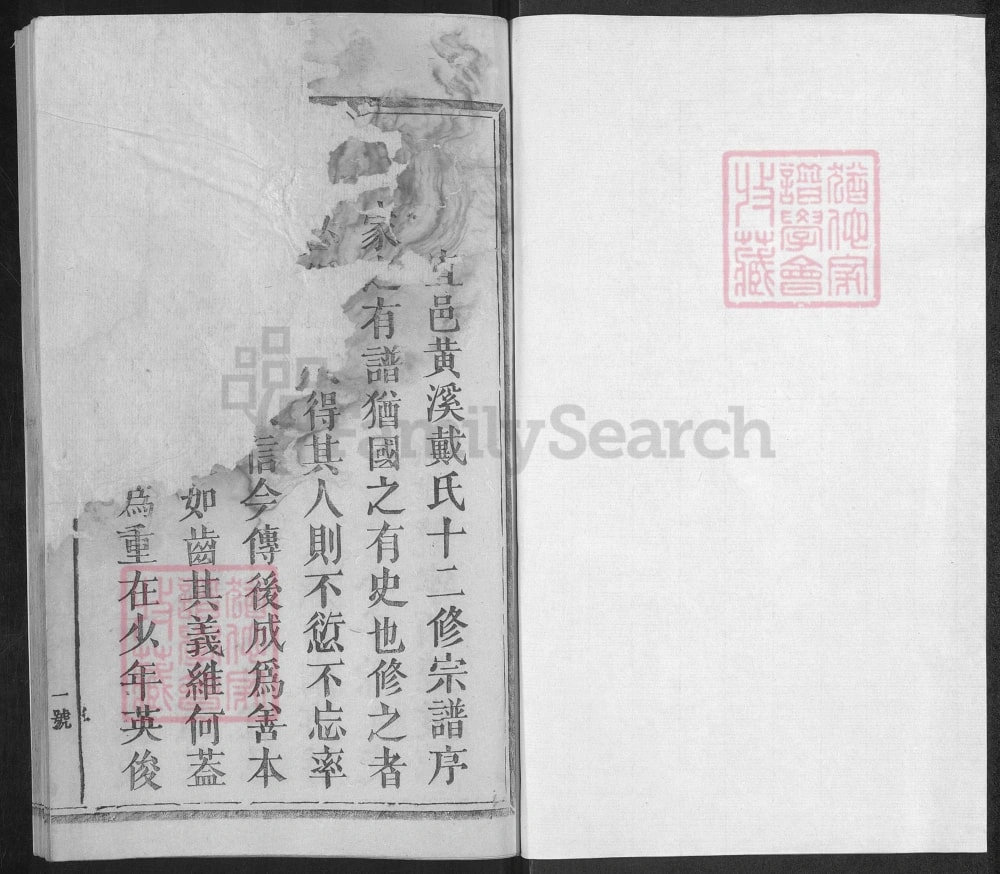 猶他家
譜學會
收藏
宜邑黃溪戴氏十二修宗譜序
家之有譜猶國之有史也修之者
得其人則不愆不忘率
信今傳後成爲善本
如齒其義維何葢
爲重在少年英俊
猶他家
譜學會
收藏
一號
FamilySearch